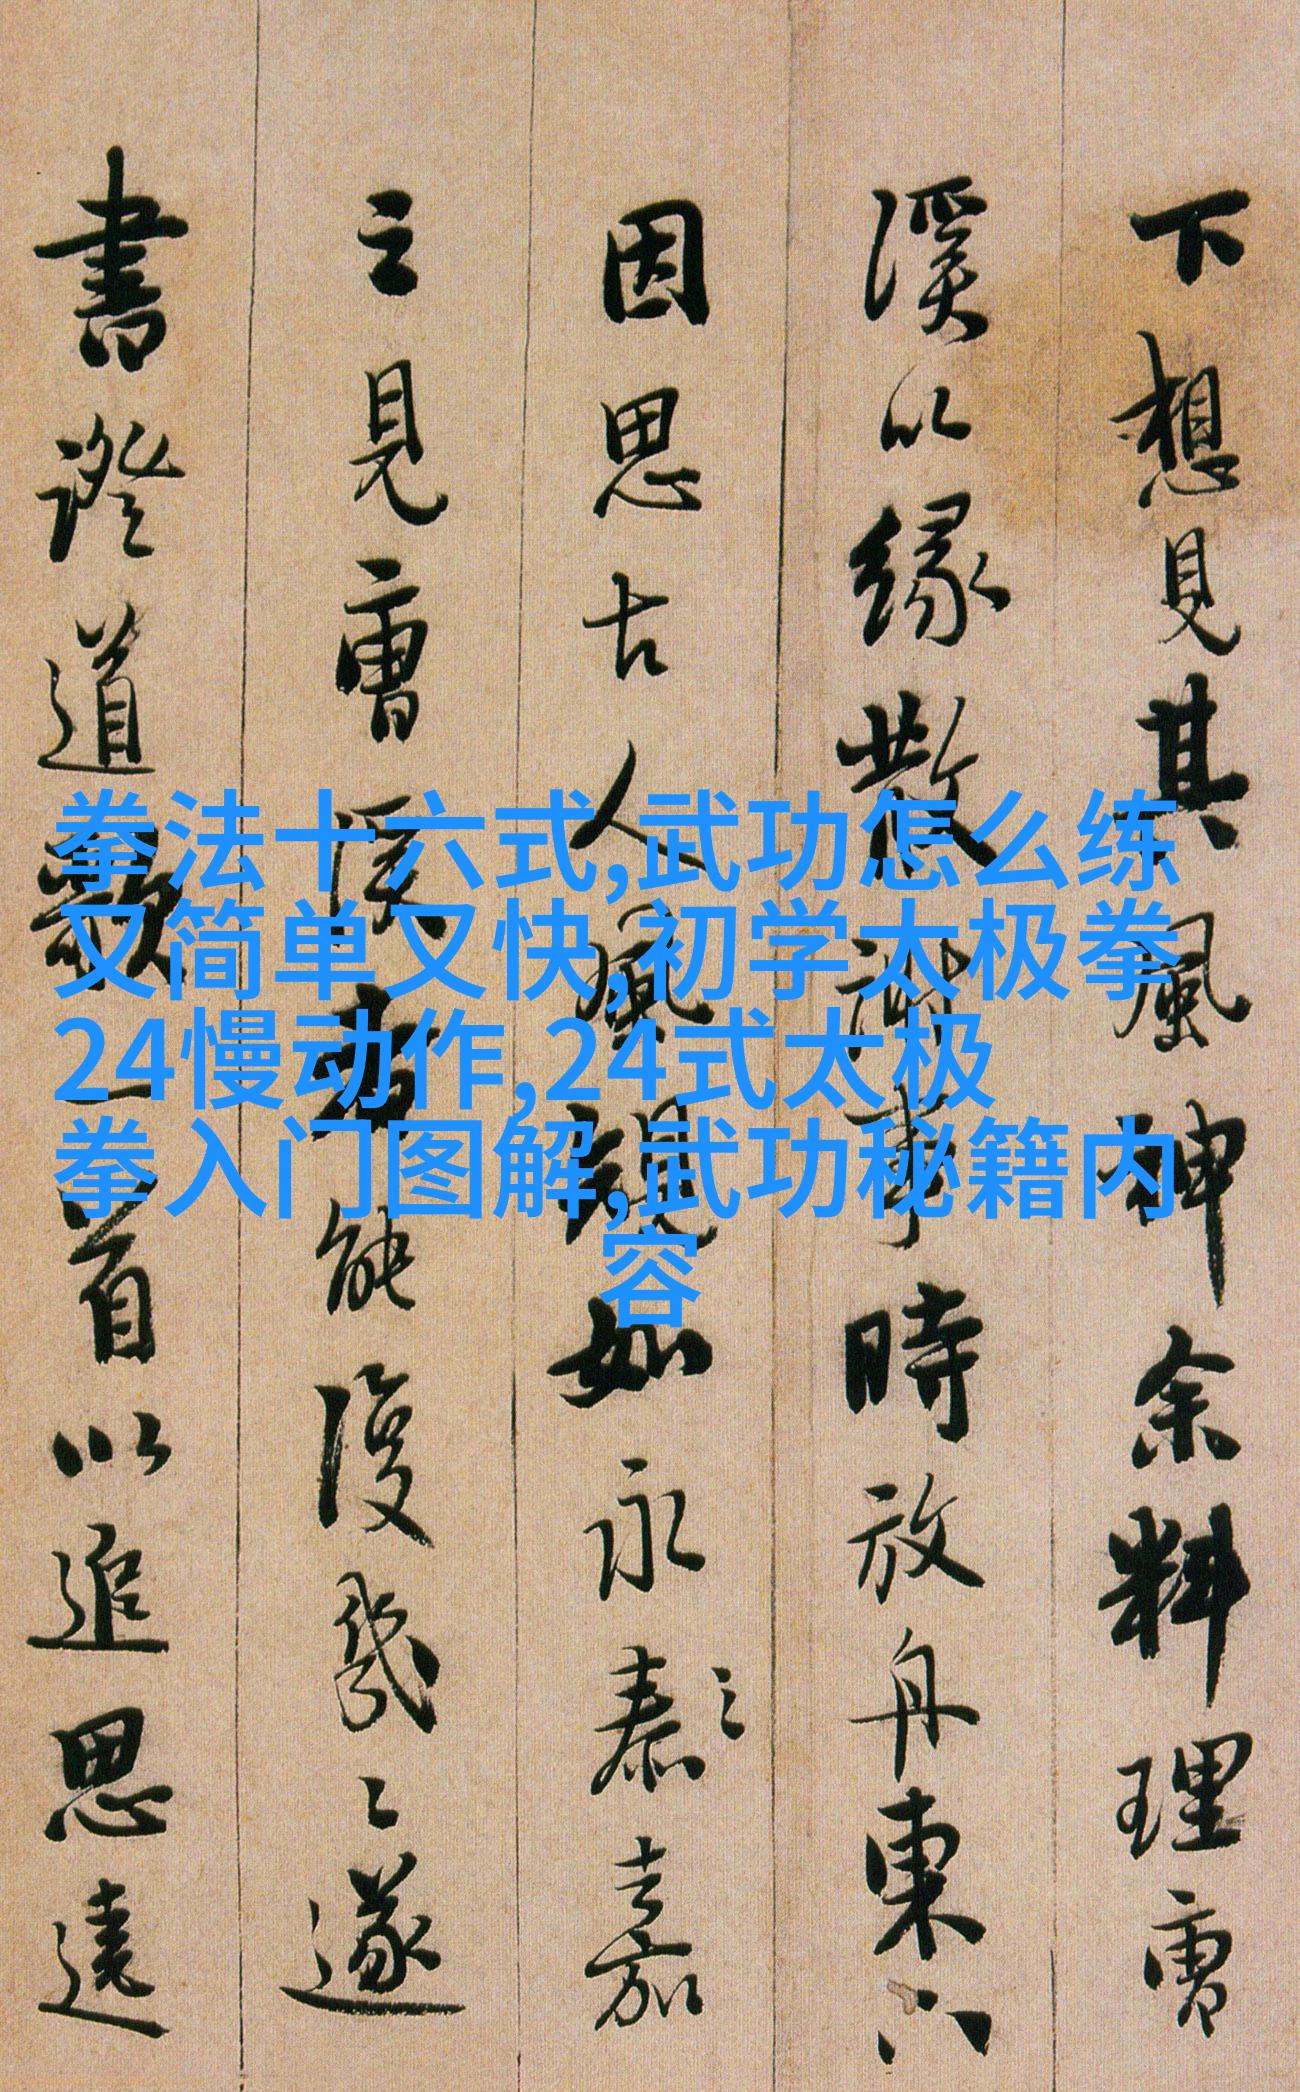 下想見其風神余料理曹
溪以緣散事時放舟東下
因思古人風規如永泰之嘉
之見曹溪者能復幾々遂
書證道歌一首以追思遠
拳法十六式,武功怎么练
又简单又快,初学太极拳
24慢动作,24式太极
拳入门图解,武功秘籍内
容